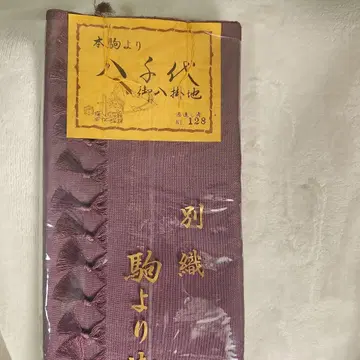 本駒より
八千代
御八掛地
128
別織
駒より